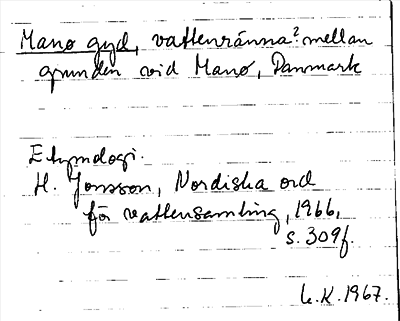 Manø gyd, vattenränna? mellan
grunden vid Manø, Danmark
Etymologi.
H. Jonsson, Nordiska ord
för vattensamling, 1966,
s. 309f.
L.K. 1967.